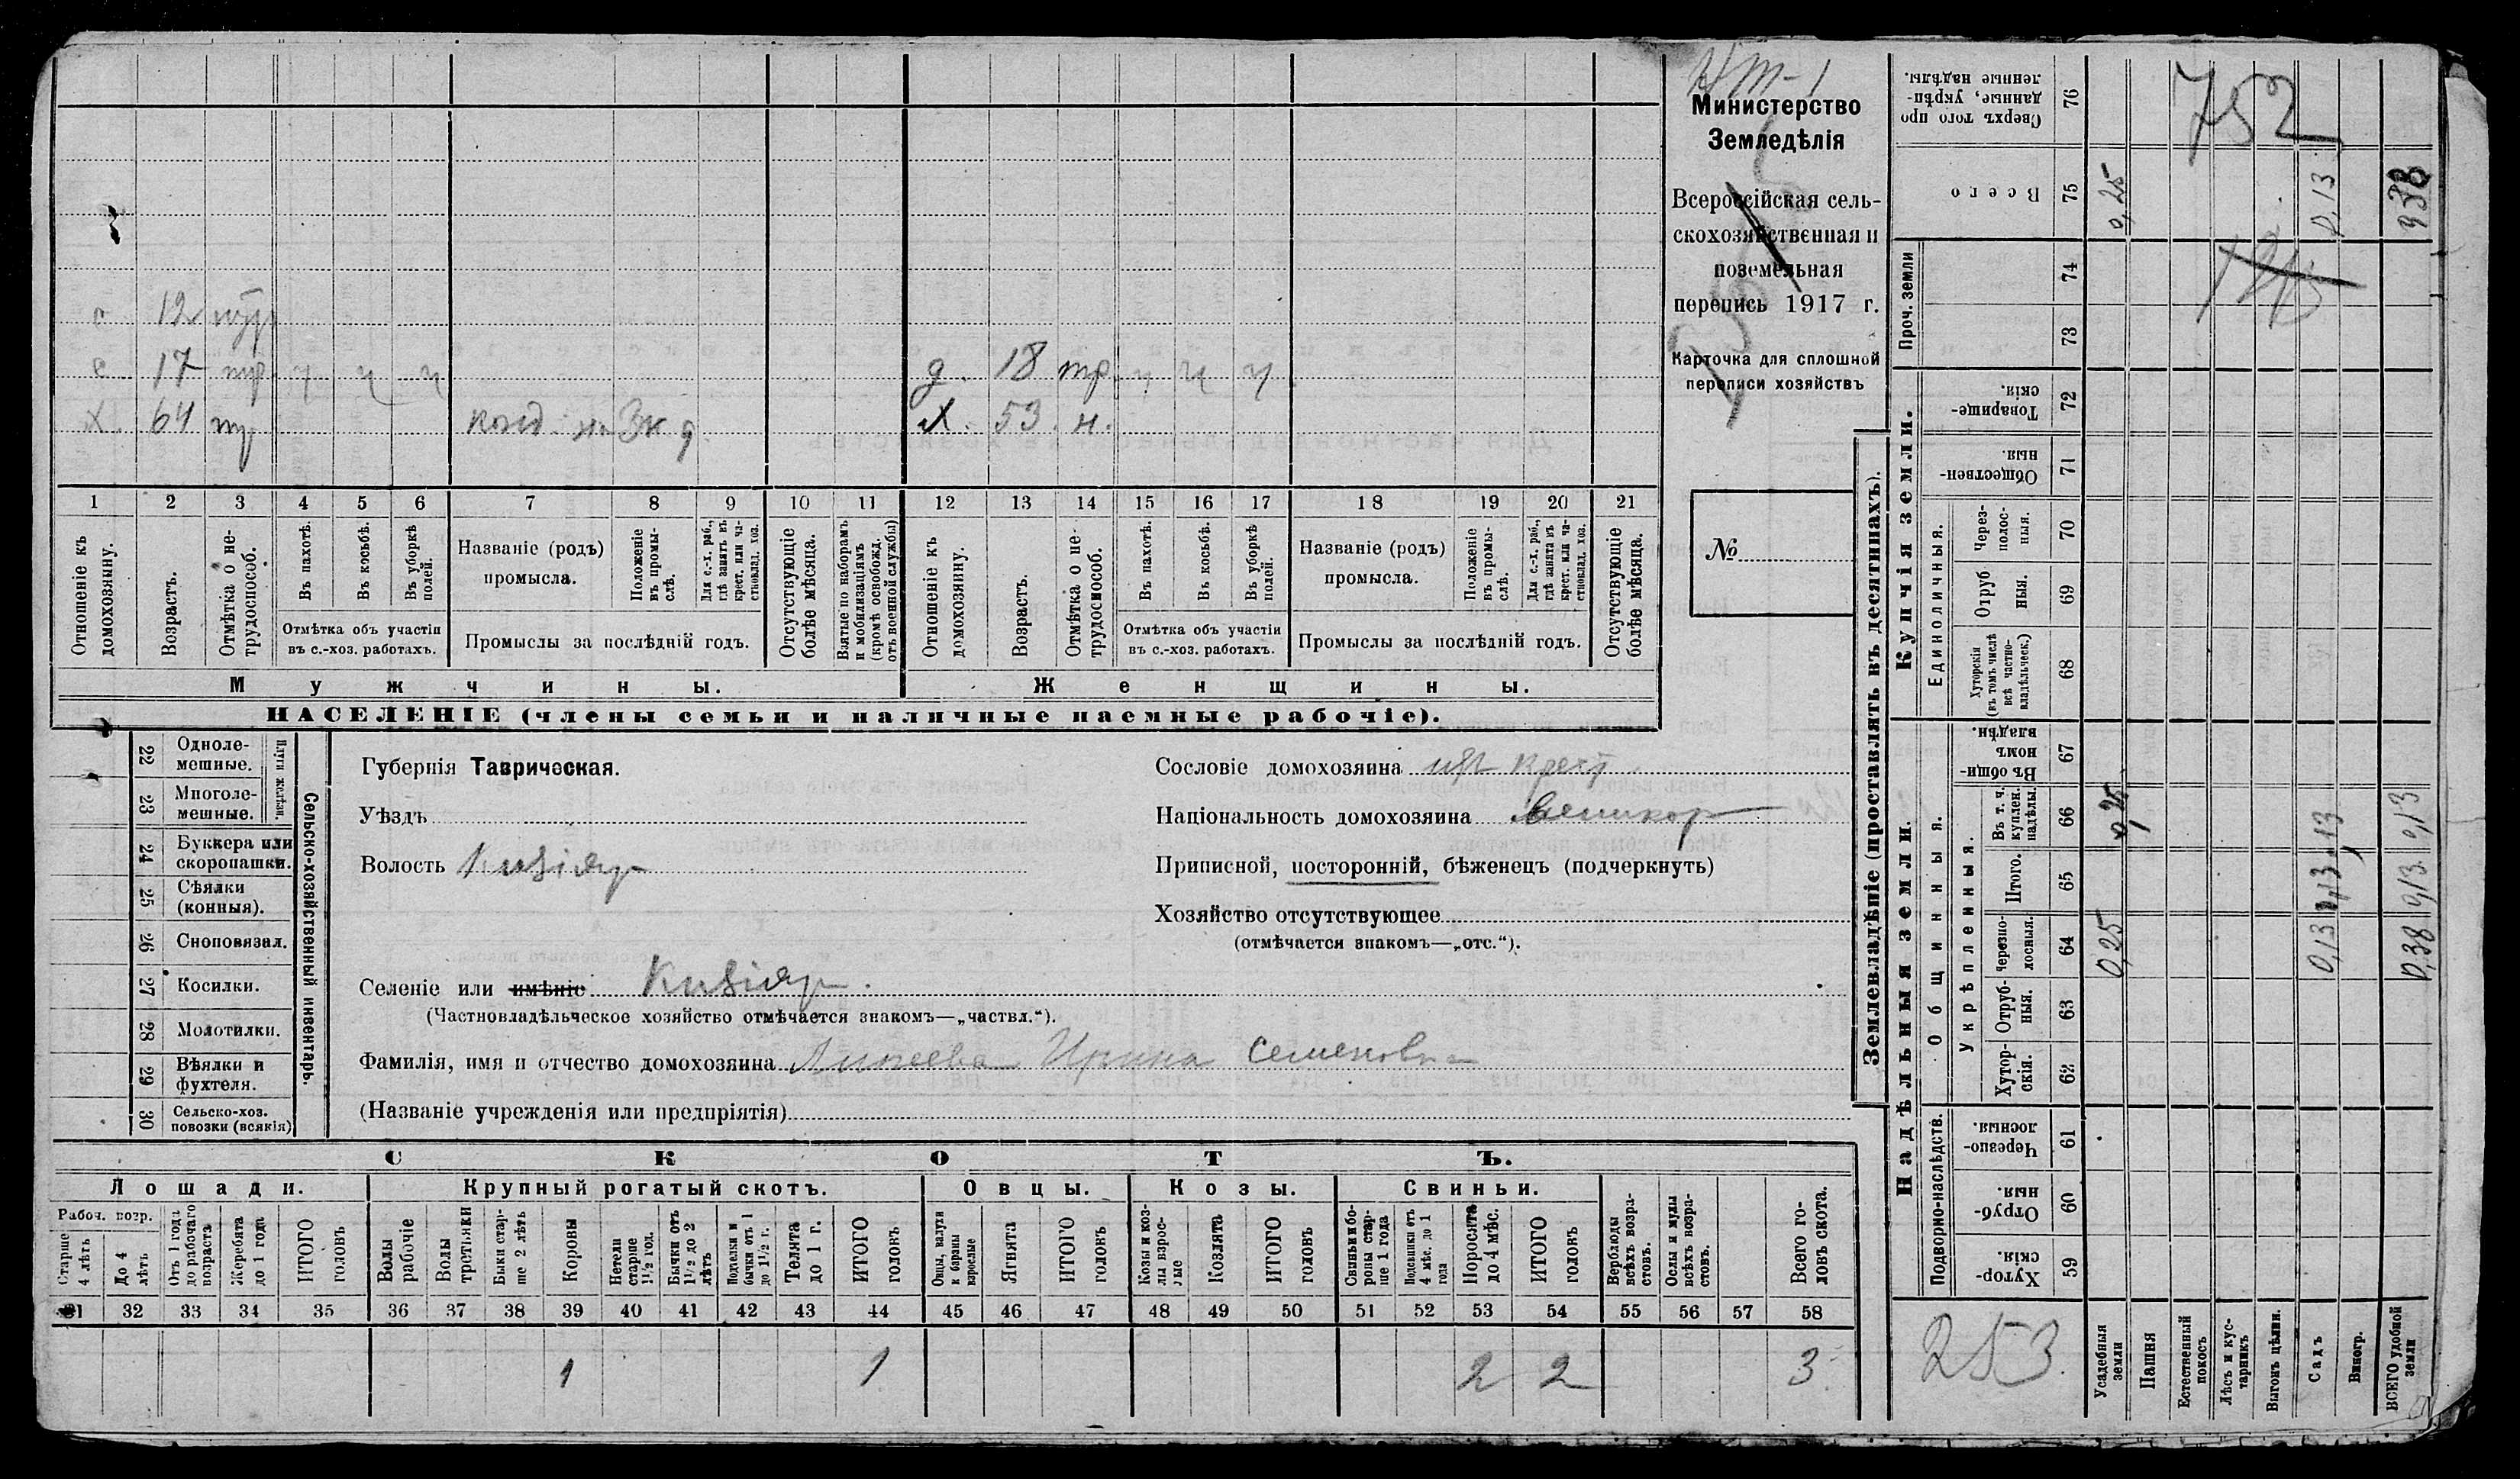 Министерство
Земледѣлія
Всероссійская сель-
скохозяйственная и
поземельная
перепись 1917 г.
Карточка для сплошной
переписи хозяйствъ
№
12
с 17 тр. ч ч ч
д. 18 тр. ч ч ч
Х 64 тр
Х. 53. н.
1 2 3 4 5 6 7 8 9 10 11 12 13 14 15 16 17 18 19 20 21
Отношеніе къ домохозяину.
Возрастъ.
Отмѣтка о не-трудоспособ.
Въ пахотѣ.
Въ косьбѣ.
Въ уборкѣ полей.
Отмѣтка объ участіи
въ с.-хоз. работахъ.
Названіе (родъ)
промысла.
Положеніе въ промы-слѣ.
Для с.-х. раб., гдѣ занятъ въ крест. или ча-стновлад. хоз.
Промыслы за послѣдній годъ.
Отсутствующіе болѣе мѣсяца.
Взятые по наборамъ и мобилизаціямъ (кромѣ освобожд. отъ военной службы)
Отношеніе къ домохозяину.
Возрастъ.
Отмѣтка о не-трудоспособ.
Въ пахотѣ.
Въ косьбѣ.
Въ уборкѣ полей.
Отмѣтка объ участіи
въ с.-хоз. работахъ.
Названіе (родъ)
промысла.
Положеніе въ промы-слѣ.
Для с.-х. раб., гдѣ занята въ крест. или ча-стновлад. хоз.
Промыслы за послѣдній годъ.
Отсутствующіе болѣе мѣсяца.
Мужчины.
Женщины.
НАСЕЛЕНІЕ (члены семьи и наличные наемные рабочіе).
Сельско-хозяйственный инвентарь.
Плуги желѣзн.
22 Одноле-мешные.
23 Многоле-мешные.
24 Буккера или скоропашки.
25 Сѣялки (конныя).
26 Сноповязал.
27 Косилки.
28 Молотилки.
29 Вѣялки и фухтеля.
30 Сельско-хоз. повозки (всякія)
Губернія Таврическая.
Уѣздъ
Волость Кизіяр
Селеніе или имѣніе Кизіяр.
(Частновладѣльческое хозяйство отмѣчается знакомъ—„частвл.“).
Фамилія, имя и отчество домохозяина Ирина Семеновна
(Названіе учрежденія или предпріятія)
Сословіе домохозяина крест.
Національность домохозяина великор
Приписной, посторонній, бѣженецъ (подчеркнуть)
Хозяйство отсутствующее
(отмѣчается знакомъ—„отс.“).
СКОТЪ.
Лошади.
Рабоч. возр.
Старше 4 лѣтъ
До 4 лѣтъ
Отъ 1 года до рабочаго возраста
Жеребята до 1 года
ИТОГО головъ
Крупный рогатый скотъ.
Волы рабочіе
Волы третьяки
Быки стар-ше 2 лѣтъ
Коровы
Нетели старше 1½ год.
Бычки отъ 1½ до 2 лѣтъ
Подтелки и бычки отъ 1 до 1½ г.
Телята до 1 г.
ИТОГО головъ
Овцы.
Овцы, валухи и бараны взрослые
Ягнята
ИТОГО головъ
Козы.
Козы и коз-лы взрос-лые
Козлята
ИТОГО головъ
Свиньи.
Свиньи и бо-ровы стар-ше 1 года
Подсвинки отъ 4 мѣс. до 1 года
Поросята до 4 мѣс.
ИТОГО головъ
Верблюды всѣхъ возра-стовъ.
Ослы и мулы всѣхъ возра-стовъ.
Всего го-ловъ скота.
31 32 33 34 35 36 37 38 39 40 41 42 43 44 45 46 47 48 49 50 51 52 53 54 55 56 57 58
1 1 2 2 3
Землевладѣніе (проставлять въ десятинахъ).
Купчія земли.
Надѣльныя земли.
Сверхъ того про-данные, укрѣп-ленные надѣлы. 76
Всего 75
Проч. земли
74
73
Товарище-скія. 72
Обществен-ныя. 71
Единоличныя.
Через-полос-ныя. 70
Отруб-ныя. 69
Хуторскія (въ томъ числѣ всѣ частно-владѣльческ.) 68
Общинныя.
Въ общи-номъ владѣн. 67
Укрѣпленныя.
Въ т. ч. куплен. надѣлы. 66
Итого. 65
Черезпо-лосныя. 64
Отруб-ныя. 63
Хутор-скія. 62
Подворно-наслѣдств.
Черезпо-лосныя. 61
Отруб-ныя. 60
Хутор-скія. 59
Усадебныя земли
Пашня
Естественный покосъ
Лѣсъ и кус-тарникъ
Выгонъ цѣлин.
Садъ
Виногр.
ВСЕГО удобной земли
752
0,25
0,13
0,38
0,25
0,13
0,38
0,13
253